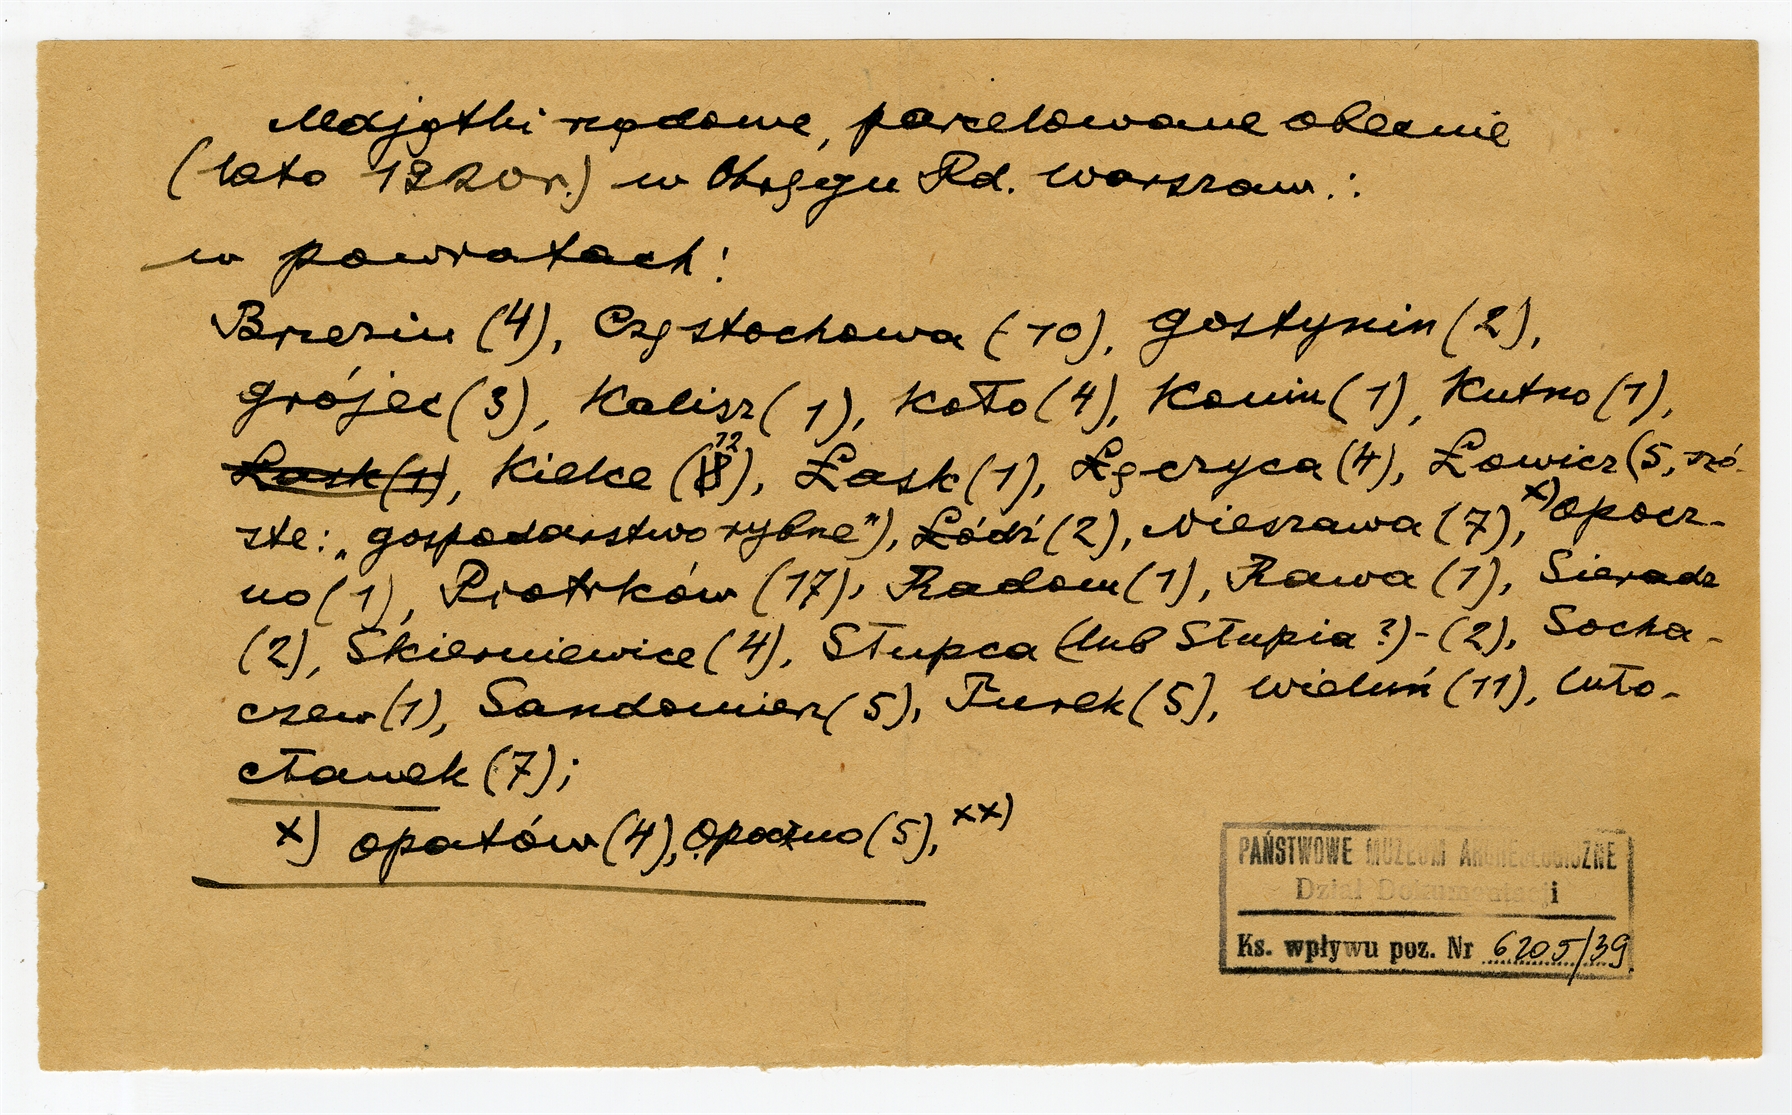 Majątki rządowe, parcelowane obecnie
(lato 1920 r.) w Okręgu Rd. Warszaw.:
w powiatach:
Brzezin (4), Częstochowa (10), Gostynin (2),
Grójec (3), Kalisz (1), Koło (4), Konin (1), Kutno (1),
Łask (1), Kielce (12), Łask (1), Łęczyca (4), Łowicz (5, szó-
ste: „gospodarstwo rybne"), Łódź (2), Nieszawa (7), x) Opocz-
no (1), Piotrków (17), Radom (1), Rawa (1), Sieradz
(2), Skierniewice (4), Słupca (lub Słupia?) - (2), Socha-
czew (1), Sandomierz (5), Turek (5), Wieluń (11), Wło-
cławek (7);
x) Opatów (4), Opoczno (5), xx)
PAŃSTWOWE MUZEUM ARCHEOLOGICZNE
Dział Dokumentacji
Ks. wpływu poz. Nr 6205/39